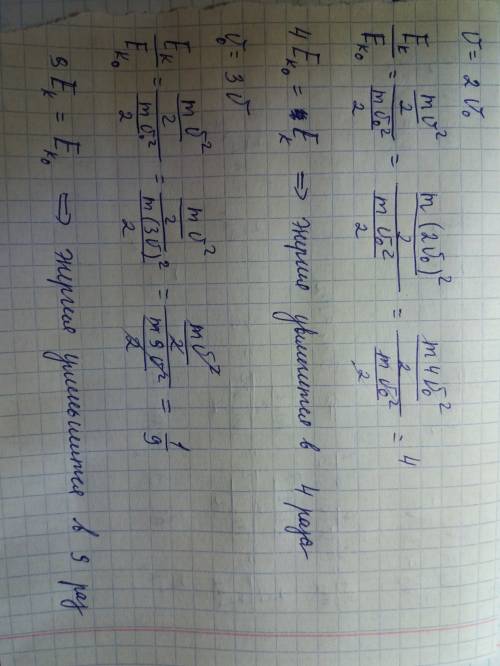 v = 2v₀
Eₖ/Eₖ₀ = (mv²/2)/(mv₀²/2) = (m(2v₀)²/2)/(mv₀²/2) = (m4v₀²/2)/(mv₀²/2) = 4
4Eₖ₀ = Eₖ ⇒ Энергия увеличится в 4 раза
v₀ = 3v
Eₖ/Eₖ₀ = (mv²/2)/(mv₀²/2) = (mv²/2)/(m(3v)²/2) = (mv²/2)/(m9v²/2) = 1/9
9Eₖ = Eₖ₀ ⇒ Энергия уменьшится в 9 раз